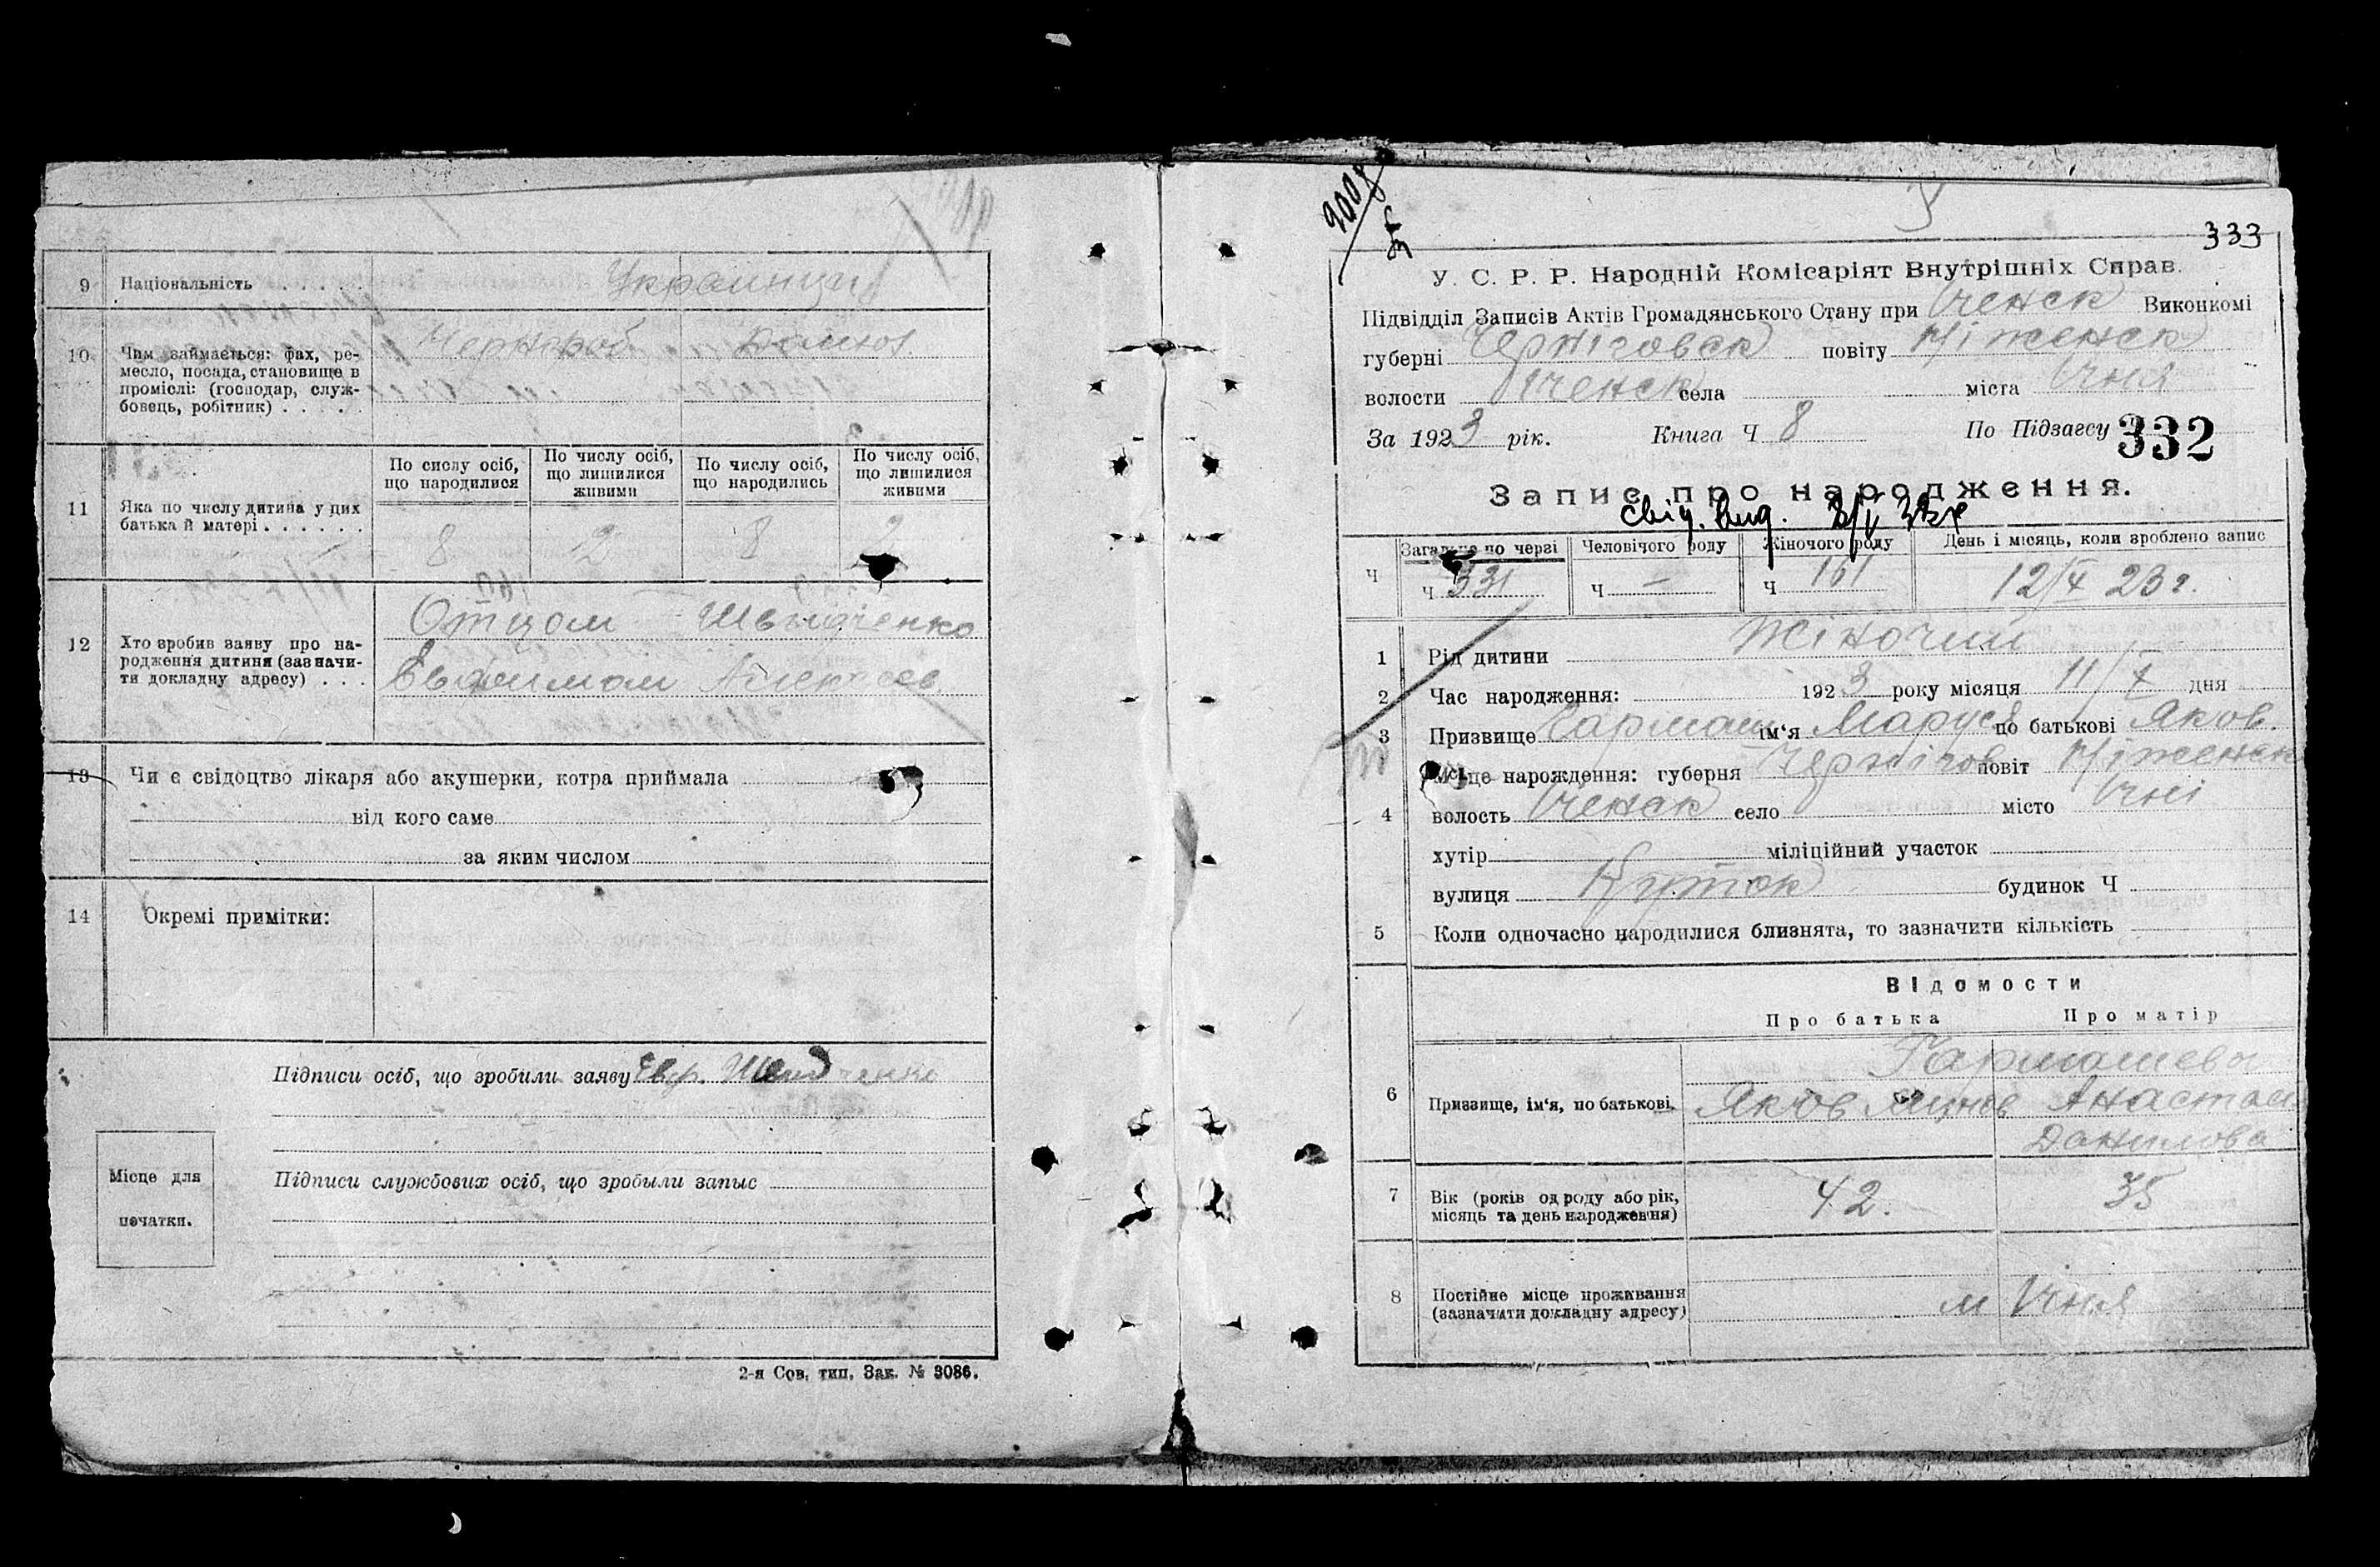 9 Національність . . . . . Украинцы
10 Чим займається: фах, ре-
месло, посада, становище в
проміслі: (господар, служ-
бовець, робітник) . . . . .
Чернороб Домхоз
По сислу осіб, що народилися
По числу осіб, що лишилися живими
По числу осіб, що народились
По числу осіб, що лишилися живими
11 Яка по числу дитина у цих
батька й матері . . . . . .
8 2 8 2
12 Хто зробив заяву про на-
родження дитини (зазначи-
ти докладну адресу) . . .
Отцом Швыдченко
Евфимом Алексеев.
13 Чи є свідоцтво лікаря або акушерки, котра приймала
від кого саме
за яким числом
14 Окремі примітки:
Підписи осіб, що зробили заяву Евф. Швидченко
Місце для
печатки.
Підписи службових осіб, що зробыли запыс
2-я Сов. тип. Зак. № 3086.
9008
333
У. С. Р. Р. Народній Комісаріят Внутрішніх Справ.
Підвідділ Записів Актів Громадянського Стану при Іченск Виконкомі
губерні Черніговск повіту Ніженск
волости Іченск села міста Ічня
За 1923 рік. Книга Ч 8 По Підзагсу 332
Запис про народження.
свід. вид.
Загальне по черзі Человічого роду Жіночого роду День і місяць, коли зроблено запис
Ч Ч 331 Ч — Ч 161 12/X 23 г.
1 Рід дитини Жіночий
2 Час народження: 1923 року місяця 11/X дня
3 Призвище Гармаш ім'я Маруся по батькові Яков.
4 Місце нарождення: губерня Чернігов повіт Ніженск
волость Іченск село місто Ічні
хутір міліційний участок
вулиця Куток будинок Ч
5 Коли одночасно народилися близнята, то зазначити кількість
Відомости
Про батька Про матір
6 Призвище, ім'я, по батькові.
Гармашевы
Яков Анастас
Данилова
7 Вік (років од роду або рік,
місяць та день народження)
42. 35
8 Постійне місце проживання
(зазначити докладну адресу)
м Ічня